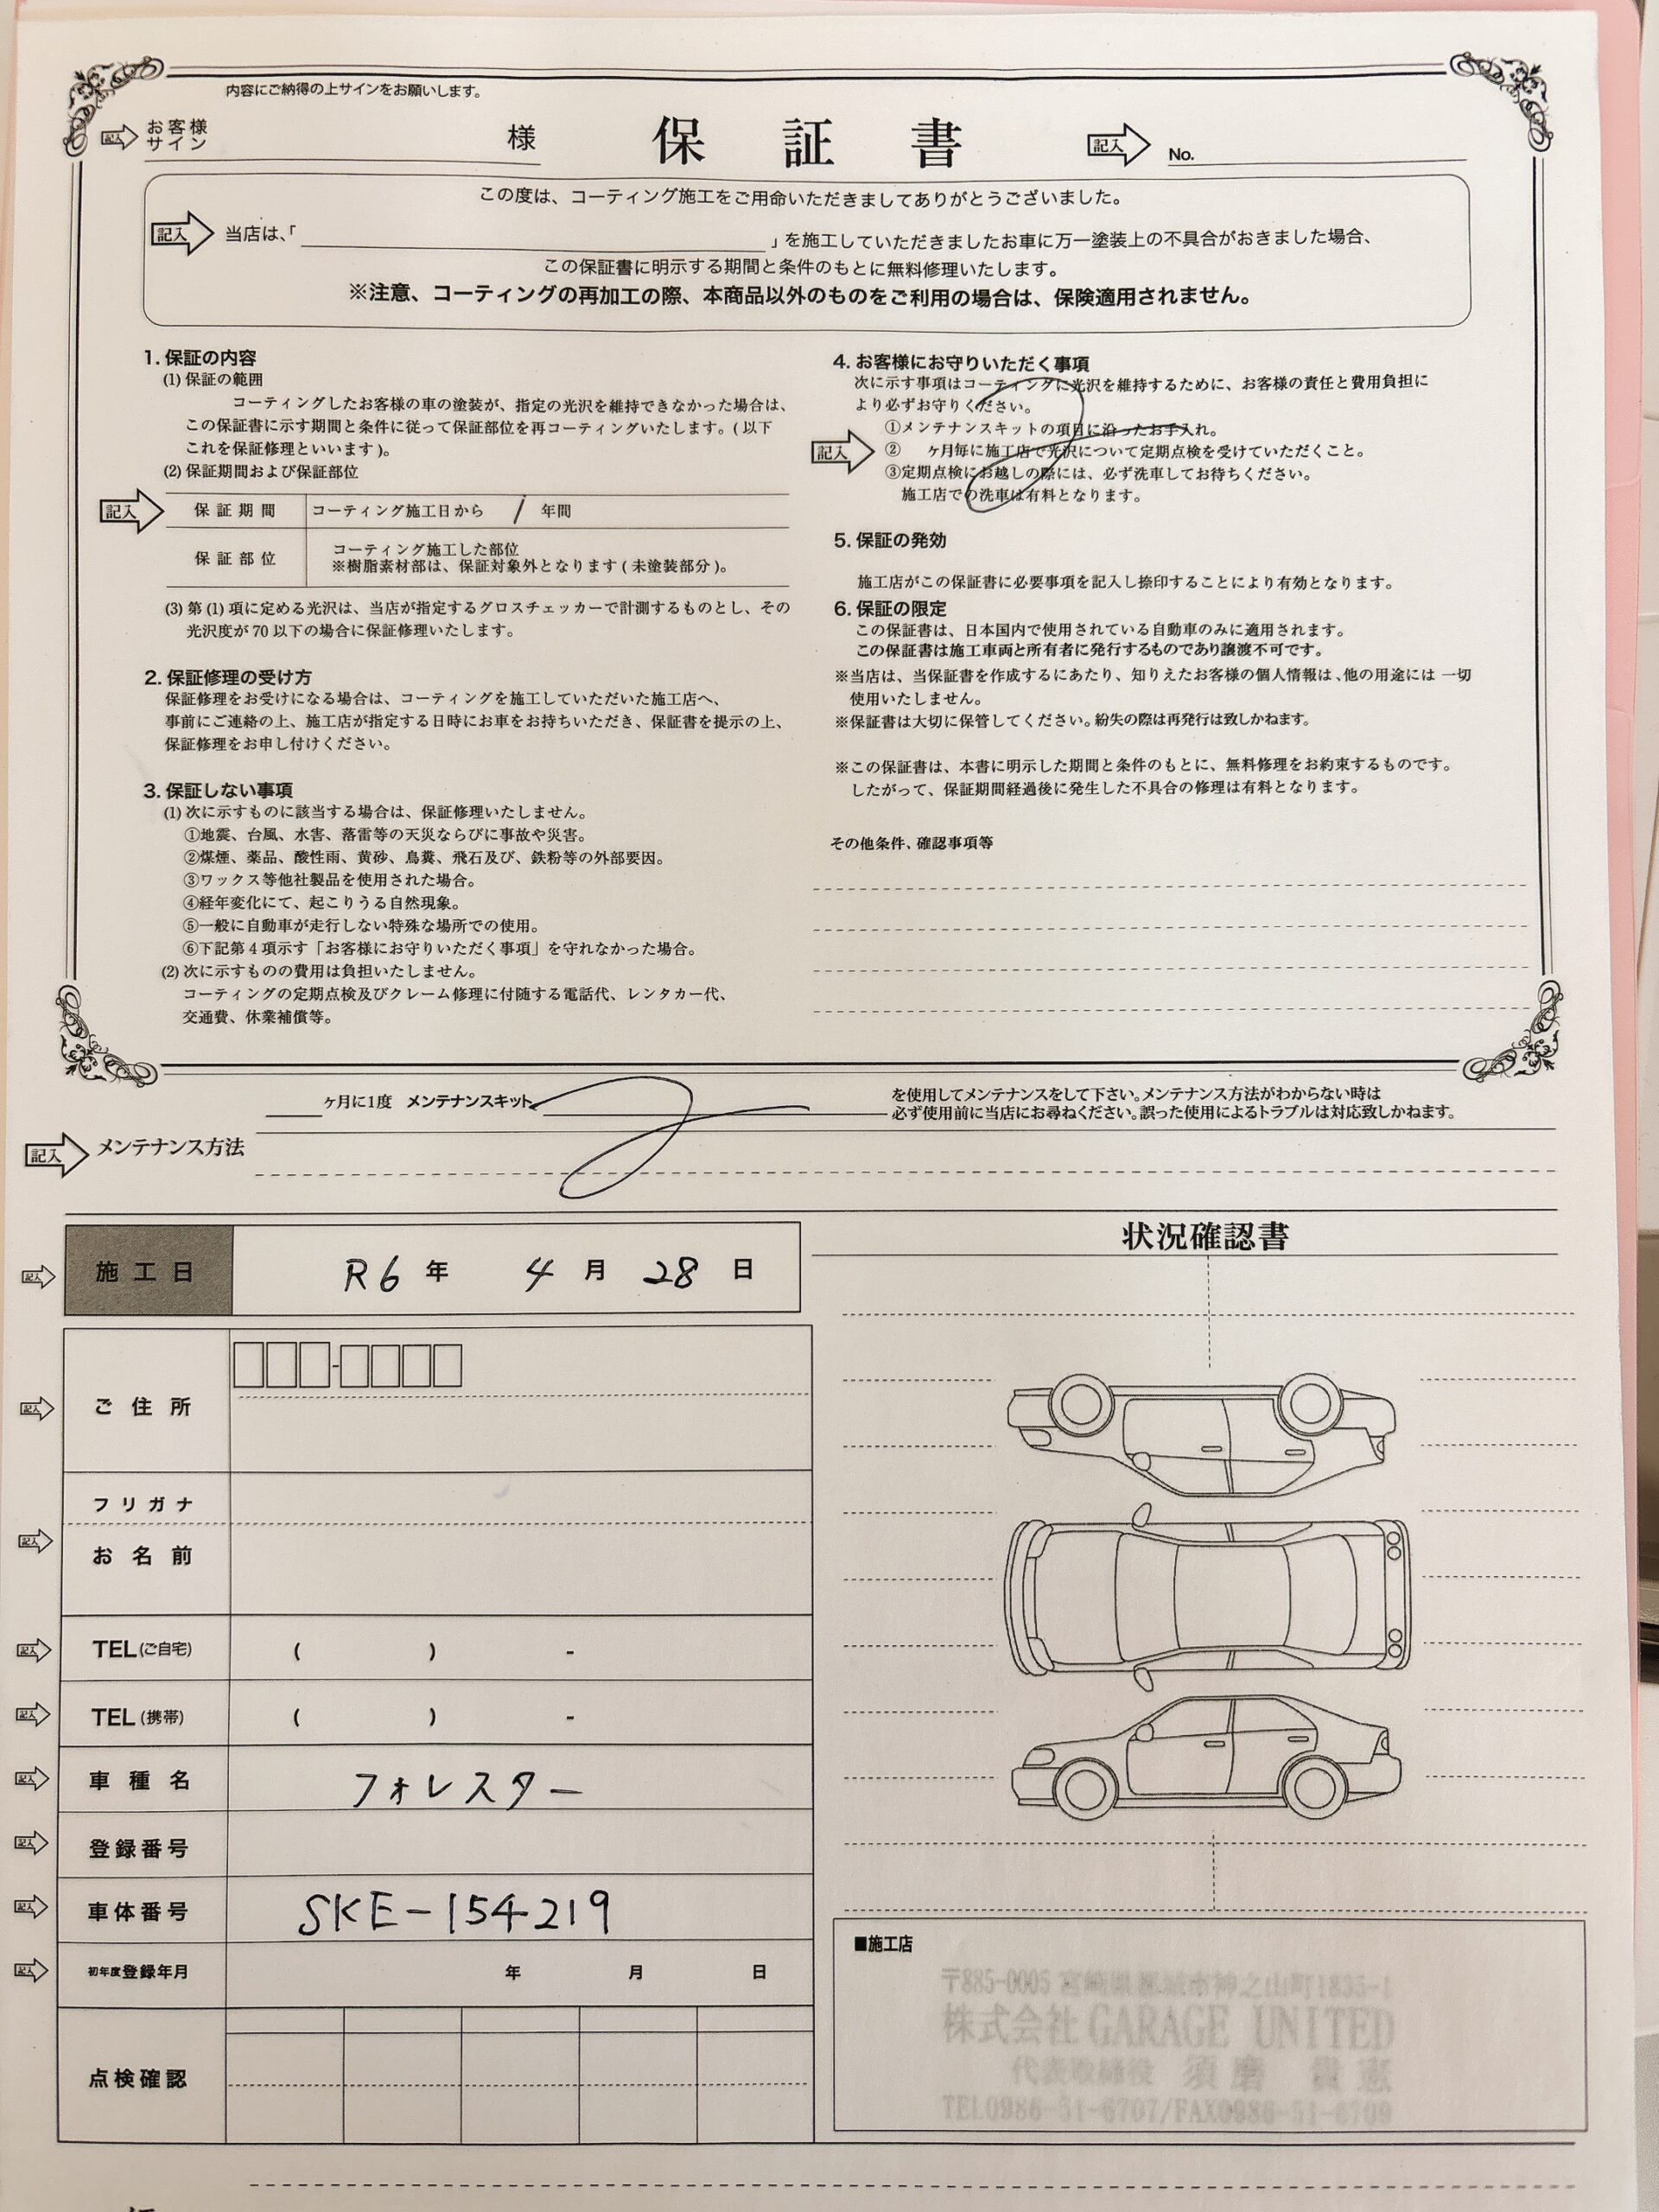 内容にご納得の上サインをお願いします。
記入 お客様サイン 様
保証書
記入 No.
この度は、コーティング施工をご用命いただきましてありがとうございました。
記入 当店は、「 」を施工していただきましたお車に万一塗装上の不具合がおきました場合、
この保証書に明示する期間と条件のもとに無料修理いたします。
※注意、コーティングの再加工の際、本商品以外のものをご利用の場合は、保険適用されません。
1. 保証の内容
(1) 保証の範囲
コーティングしたお客様の車の塗装が、指定の光沢を維持できなかった場合は、
この保証書に示す期間と条件に従って保証部位を再コーティングいたします。( 以下
これを保証修理といいます )。
(2) 保証期間および保証部位
記入 保証期間 コーティング施工日から 1 年間
保証部位 コーティング施工した部位
※樹脂素材部は、保証対象外となります ( 未塗装部分 )。
(3) 第 (1) 項に定める光沢は、当店が指定するグロスチェッカーで計測するものとし、その
光沢度が 70 以下の場合に保証修理いたします。
2. 保証修理の受け方
保証修理をお受けになる場合は、コーティングを施工していただいた施工店へ、
事前にご連絡の上、施工店が指定する日時にお車をお持ちいただき、保証書を提示の上、
保証修理をお申し付けください。
3. 保証しない事項
(1) 次に示すものに該当する場合は、保証修理いたしません。
①地震、台風、水害、落雷等の天災ならびに事故や災害。
②煤煙、薬品、酸性雨、黄砂、鳥糞、飛石及び、鉄粉等の外部要因。
③ワックス等他社製品を使用された場合。
④経年変化にて、起こりうる自然現象。
⑤一般に自動車が走行しない特殊な場所での使用。
⑥下記第 4 項示す「お客様にお守りいただく事項」を守れなかった場合。
(2) 次に示すものの費用は負担いたしません。
コーティングの定期点検及びクレーム修理に付随する電話代、レンタカー代、
交通費、休業補償等。
4. お客様にお守りいただく事項
次に示す事項はコーティングに光沢を維持するために、お客様の責任と費用負担に
より必ずお守りください。
①メンテナンスキットの項目に沿ったお手入れ。
記入 ② ヶ月毎に施工店で光沢について定期点検を受けていただくこと。
③定期点検にお越しの際には、必ず洗車してお待ちください。
施工店での洗車は有料となります。
5. 保証の発効
施工店がこの保証書に必要事項を記入し捺印することにより有効となります。
6. 保証の限定
この保証書は、日本国内で使用されている自動車のみに適用されます。
この保証書は施工車両と所有者に発行するものであり譲渡不可です。
※当店は、当保証書を作成するにあたり、知りえたお客様の個人情報は、他の用途には 一切
使用いたしません。
※保証書は大切に保管してください。紛失の際は再発行は致しかねます。
※この保証書は、本書に明示した期間と条件のもとに、無料修理をお約束するものです。
したがって、保証期間経過後に発生した不具合の修理は有料となります。
その他条件、確認事項等
ヶ月に1度 メンテナンスキット
を使用してメンテナンスをして下さい。メンテナンス方法がわからない時は
必ず使用前に当店にお尋ねください。誤った使用によるトラブルは対応致しかねます。
記入 メンテナンス方法
記入 施工日 R6 年 4 月 28 日
記入 ご住所 -
フリガナ
記入 お名前
記入 TEL(ご自宅) ( ) -
記入 TEL(携帯) ( ) -
記入 車種名 フォレスター
記入 登録番号
記入 車体番号 SKE-154219
記入 初年度登録年月 年 月 日
点検確認
状況確認書
■施工店
〒885-0005 宮崎県都城市神之山町1835-1
株式会社 GARAGE UNITED
代表取締役 須磨 貴憲
TEL0986-51-6707/FAX0986-51-6709